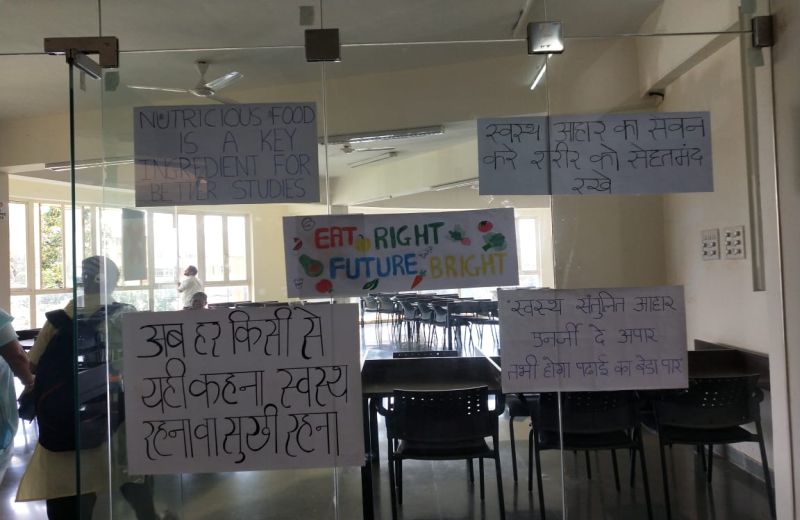 NUTRICIOUS FOOD
IS A KEY
INGREDIENT FOR
BETTER STUDIES
स्वस्थ आहार का सेवन
करे शरीर को सेहतमंद
रखे
EAT RIGHT
FUTURE BRIGHT
अब हर किसी से
यही कहना स्वस्थ
रहना वा सुखी रहना
स्वस्थ संतुलित आहार
एनर्जी दे अपार
तभी होगा पढाई का बेडा पार